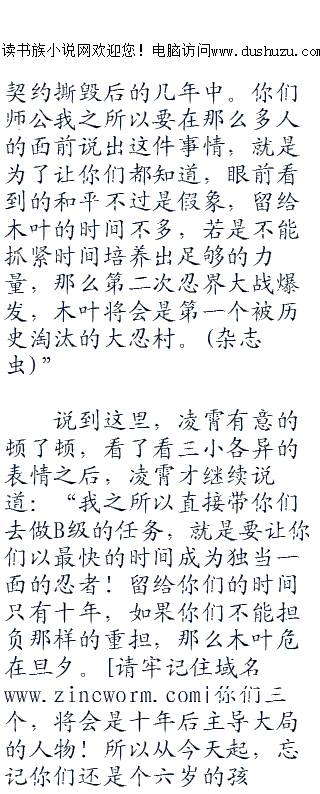 读书族小说网欢迎您！电脑访问www.dushuzu.com
契约撕毁后的几年中。你们
师公我之所以要在那么多人
的面前说出这件事情，就是
为了让你们都知道，眼前看
到的和平不过是假象，留给
木叶的时间不多，若是不能
抓紧时间培养出足够的力
量，那么第二次忍界大战爆
发，木叶将会是第一个被历
史淘汰的大忍村。(杂志
虫)”
说到这里，凌霄有意的
顿了顿，看了看三小各异的
表情之后，凌霄才继续说
道：“我之所以直接带你们
去做B级的任务，就是要让你
们以最快的时间成为独当一
面的忍者！留给你们的时间
只有十年，如果你们不能担
负那样的重担，那么木叶危
在旦夕。[请牢记住域名
www.zincworm.com|你们三
个，将会是十年后主导大局
的人物！所以从今天起，忘
记你们还是个六岁的孩